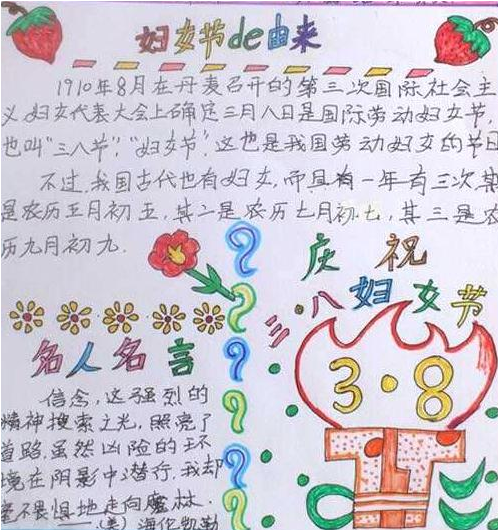 妇女节de由来
1910年8月在丹麦召开的第三次国际社会主
义妇女代表大会上确定三月八日是国际劳动妇女节,
也叫"三八节","妇女节".这也是我国劳动妇女的节日
不过,我国古代也有妇女,而且有一年有三次其
是农历三月初五,其二是农历七月初七,其三是农
历九月初九.
庆祝
三八妇女节
3·8
名人名言
信念,这强烈的
精神搜索之光,照亮了
道路,虽然凶险的环
境在阴影中潜行,我却
毫不畏惧地走向魔林.
(美)海伦凯勒